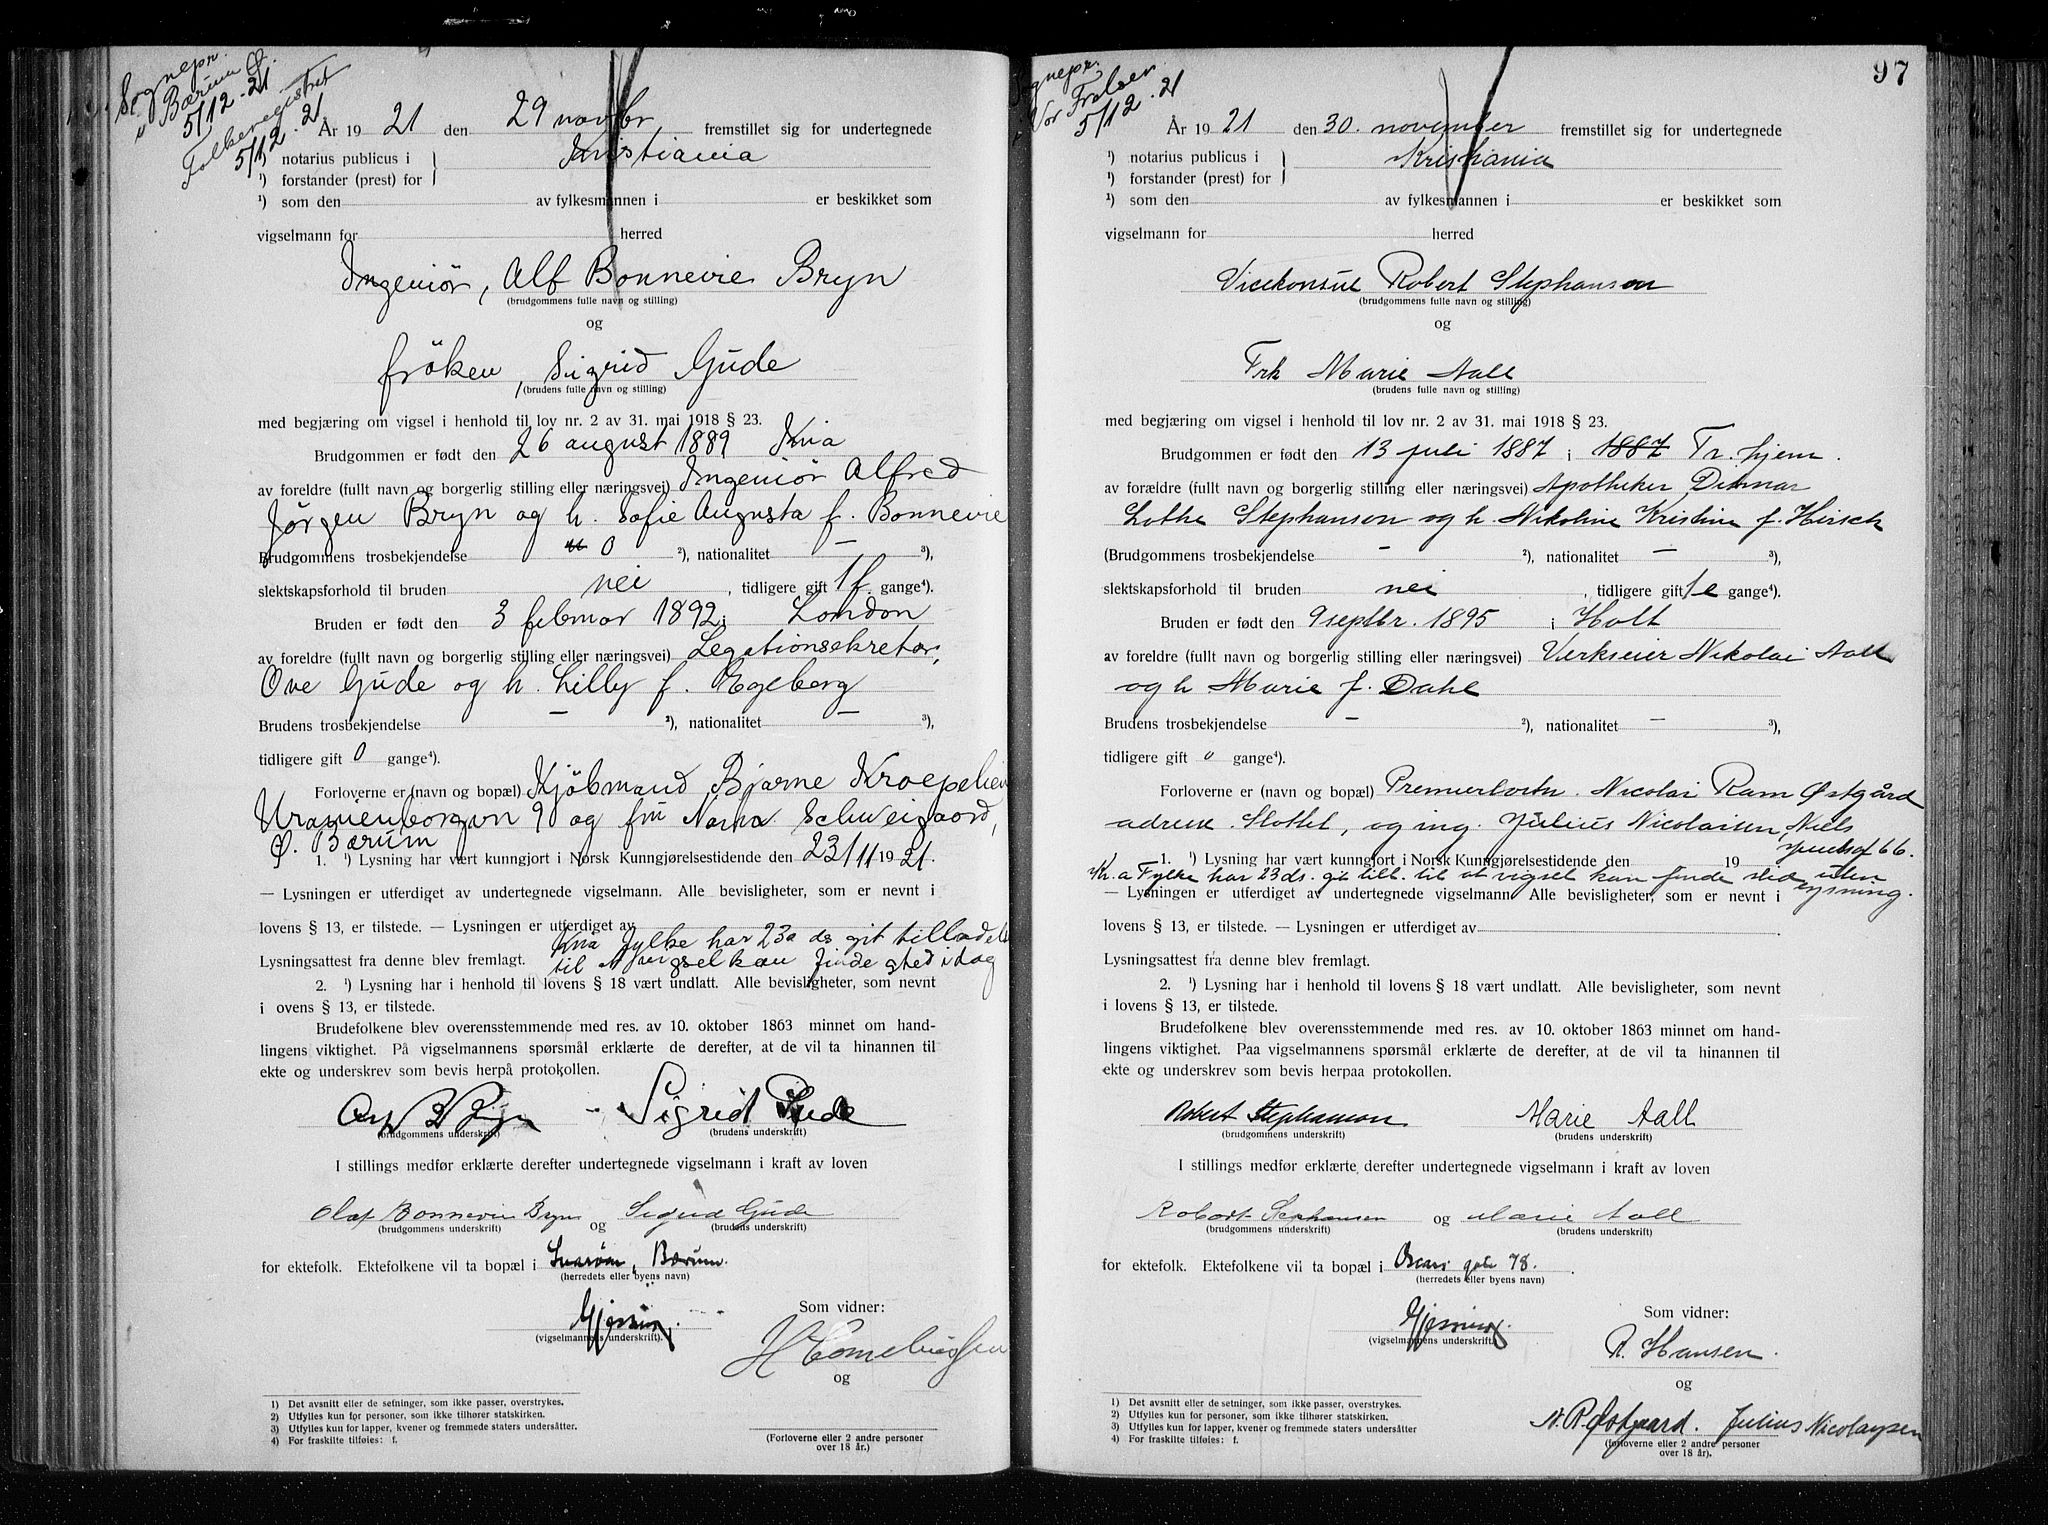 Sognepr.
" Bærum Ø.
5/12-21
Folkeregistret
5/12.21
År 1921 den 29 novbr fremstillet sig for undertegnede
¹) notarius publicus i Kristiania
¹) forstander (prest) for
¹) som den av fylkesmannen i er beskikket som
vigselmann for herred
Ingeniør, Alf Bonnevie Bryn
(brudgommens fulle navn og stilling)
og
fröken, Sigrid Gude
(brudens fulle navn og stilling)
med begjæring om vigsel i henhold til lov nr. 2 av 31. mai 1918 § 23.
Brudgommen er født den 26 august 1889 Kria
av foreldre (fullt navn og borgerlig stilling eller næringsvei) Ingeniør Alfred
Jørgen Bryn og h. Sofie Augusta f. Bonnevie
Brudgommens trosbekjendelse 0 ²), nationalitet — ³),
slektskapsforhold til bruden nei, tidligere gift 1 f. gange⁴).
Bruden er født den 3 februar 1892 i London
av foreldre (fullt navn og borgerlig stilling eller næringsvei) Legationsekretær,
Ove Gude og h. Lilly f. Egeberg
Brudens trosbekjendelse — ²), nationalitet — ³),
tidligere gift 0 gange⁴).
Forloverne er (navn og bopæl) Kjøbmand Bjarne Kroepelien
Uranienborgvn 9 og fru Nanna Schweigaard,
Ø. Bærum
1. ¹) Lysning har vært kunngjort i Norsk Kunngjørelsestidende den 23/11 1921.
— Lysningen er utferdiget av undertegnede vigselmann. Alle bevisligheter, som er nevnt i
lovens § 13, er tilstede. — Lysningen er utferdiget av
Kria fylke har 23a ds git tilladels
Lysningsattest fra denne blev fremlagt. til at vigsel kan finde sted idag
2. ¹) Lysning har i henhold til lovens § 18 vært undlatt. Alle bevisligheter, som nevnt
i ovens § 13, er tilstede.
Brudefolkene blev overensstemmende med res. av 10. oktober 1863 minnet om hand-
lingens viktighet. På vigselmannens spørsmål erklærte de derefter, at de vil ta hinannen til
ekte og underskrev som bevis herpå protokollen.
Alf B Bryn — Sigrid Gude
(brudgommens underskrift) (brudens underskrift)
I stillings medfør erklærte derefter undertegnede vigselmann i kraft av loven
Olaf Bonnevie Bryn og Sigrid Gude
(brudgommens underskrift) (brudens underskrift)
for ektefolk. Ektefolkene vil ta bopæl i Snarøen, Bærum.
(herredets eller byens navn)
Gjessing
(vigselmannens underskrift).
Som vidner:
H Corneliussen
og
(Forloverne eller 2 andre personer
over 18 år.)
1) Det avsnitt eller de setninger, som ikke passer, overstrykes.
2) Utfylles kun for personer, som ikke tilhører statskirken.
3) Utfylles kun for lapper, kvener og fremmede staters undersåtter.
4) For fraskilte tilføies: f.
97
Sognepr.
" Vor Frelser
5/12.21
År 1921 den 30. november fremstillet sig for undertegnede
¹) notarius publicus i Kristiania
¹) forstander (prest) for
¹) som den av fylkesmannen i er beskikket som
vigselmann for herred
Vicekonsul Robert Stephanson
(brudgommens fulle navn og stilling)
og
Frk Marie Aall
(brudens fulle navn og stilling)
med begjæring om vigsel i henhold til lov nr. 2 av 31. mai 1918 § 23.
Brudgommen er født den 13 juli 1887 i 1887 Tr.hjem.
av forældre (fullt navn og borgerlig stilling eller næringsvei) Apotheker Ditmar
Lothe Stephanson og h. Nikoline Kristine f. Hirsch
(Brudgommens trosbekjendelse — ²), nationalitet — ³),
slektskapsforhold til bruden nei, tidligere gift 1 e gange⁴).
Bruden er født den 9 septbr. 1895 i Holt
av foreldre (fullt navn og borgerlig stilling eller næringsvei) Verkseier Nikolai Aall
og h Marie f. Dahl
Brudens trosbekjendelse — ²), nationalitet — ³),
tidligere gift 0 gange⁴).
Forloverne er (navn og bopæl) Premierløitn. Nicolai Ram Østgård
adresse Slottet, og ing. Julius Nicolaisen, Niels
Juelsgt 66.
1. ¹) Lysning har vært kunngjort i Norsk Kunngjørelsestidende den 19
Kr.a Fylke har 23 ds. git till. til at vigsel kan finde sted uten
lysning.
— Lysningen er utferdiget av undertegnede vigselmann. Alle bevisligheter, som er nevnt i
lovens § 13, er tilstede. — Lysningen er utferdiget av
Lysningsattest fra denne blev fremlagt.
2. ¹) Lysning har i henhold til lovens § 18 vært undlatt. Alle bevisligheter, som nevnt
i lovens § 13, er tilstede.
Brudefolkene blev overensstemmende med res. av 10. oktober 1863 minnet om hand-
lingens viktighet. Paa vigselmannens spørsmål erklærte de derefter, at de vil ta hinannen til
ekte og underskrev som bevis herpaa protokollen.
Robert Stephanson Marie Aall
(brudgommens underskrift) (brudens underskrift)
I stillings medfør erklærte derefter undertegnede vigselmann i kraft av loven
Robert Stephansen og Marie Aall
(brudgommens underskrift) (brudens underskrift)
for ektefolk. Ektefolkene vil ta bopæl i Oscars gate 78.
(herredets eller byens navn)
Gjessing
(vigselmannens underskrift)
Som vidner:
R. Hansen.
og
N. R. Østgaard. Julius Nicolaysen
(forloverne eller 2 andre personer
over 18 år).
1) Det avsnitt eller de setninger, som ikke passer, overstrykes.
2) Utfylles kun for personer, som ikke tilhører statskirken.
3) Utfylles kun for lapper, kvener og fremmede staters undersåtter.
4) For fraskilte tilføies: f.